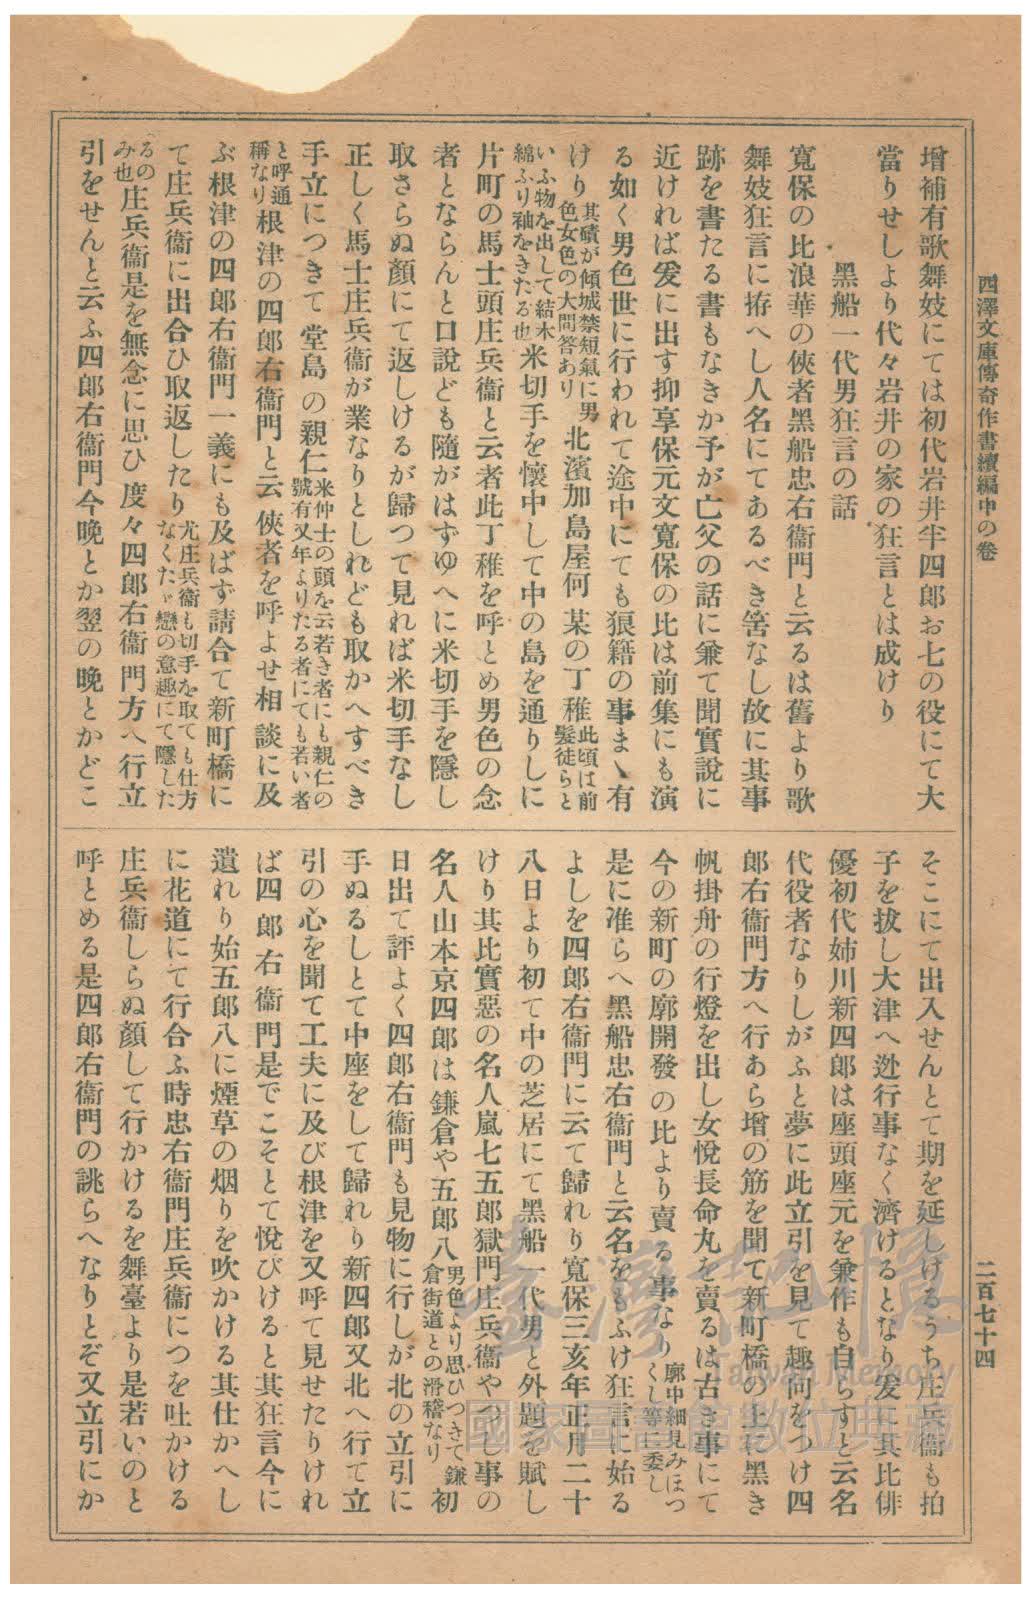 西澤文庫傳奇作書續編中の卷
二百七十四
增補有歌舞妓にては初代岩井半四郎お七の役にて大
當りせしより代々岩井の家の狂言とは成けり
黑船一代男狂言の話
寬保の比浪華の俠者黑船忠右衞門と云るは舊より歌
舞妓狂言に拵へし人名にてあるべき筈なし故に其事
跡を書たる書もなきか予が亡父の話に兼て聞實說に
近ければ爰に出す抑享保元文寬保の比は前集にも演
る如く男色世に行われて途中にても狼籍の事まゝ有
けり其磧が傾城禁短氣に男色女色の大問答あり北濱加島屋何某の丁稚此頃は前髮徒らと
いふ物を出して結木綿ふり袖をきたる也米切手を懷中して中の島を通りしに
片町の馬士頭庄兵衞と云者此丁稚を呼とめ男色の念
者とならんと口說ども隨がはずゆへに米切手を隱し
取さらぬ顏にて返しけるが歸つて見れば米切手なし
正しく馬士庄兵衞が業なりとしれども取かへすべき
手立につきて堂島の親仁米仲士の頭を云若き者にも親仁の號有又年よりたる者にても若い者
と呼通稱なり根津の四郎右衞門と云俠者を呼よせ相談に及
ぶ根津の四郎右衞門一義にも及ばず請合て新町橋に
て庄兵衞に出合ひ取返したり尤庄兵衞も切手を取ても仕方なくたゞ戀の意趣にて隱した
るのみ也庄兵衞是を無念に思ひ度々四郎右衞門方へ行立
引をせんと云ふ四郎右衞門今晚とか翌の晚とかどこ
そこにて出入せんとて期を延しけるうち庄兵衞も拍
子を拔し大津へ迯行事なく濟けるとなり爰に其比俳
優初代姉川新四郎は座頭座元を兼作も自らすと云名
代役者なりしがふと夢に此立引を見て趣向をつけ四
郎右衞門方へ行あら增の筋を聞て新町橋の上に黑き
帆掛舟の行燈を出し女悅長命丸を賣るは古き事にて
今の新町の廓開發の比より賣る事なり廓中細見みほつくし等に委し
是に准らへ黑船忠右衞門と云名をもふけ狂言に始る
よしを四郎右衞門に云て歸れり寬保三亥年正月二十
八日より初て中の芝居にて黑船一代男と外題を賦し
けり其比實惡の名人嵐七五郎獄門庄兵衞やつし事の
名人山本京四郎は鎌倉や五郎八男色より思ひつきて鎌倉街道との滑稽なり初
日出て評よく四郎右衞門も見物に行しが北の立引に
手ぬるしとて中座をして歸れり新四郎又北へ行て立
引の心を聞て工夫に及び根津を又呼て見せたりけれ
ば四郎右衞門是でこそとて悅びけると其狂言今に
遺れり始五郎八に煙草の烟りを吹かける其仕かへし
に花道にて行合ふ時忠右衞門庄兵衞につを吐かける
庄兵衞しらぬ顏して行かけるを舞臺より是若いのと
呼とめる是四郎右衞門の誂らへなりとぞ又立引にか
臺灣記憶
Taiwan Memory
國家圖書館數位典藏